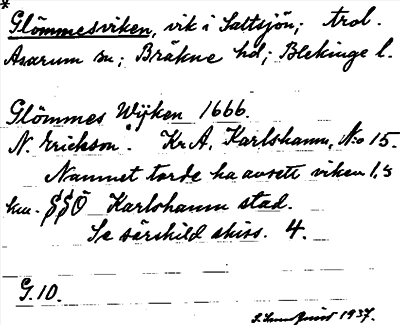 *
Glömmesviken, vik i Saltsjön; trol.
Asarum sn; Bräkne hd; Blekinge l.
Glömmes Wijken 1666.
N. Erichson. Kr A, Karlshamn, N:o 15.
Namnet torde ha avsett viken 1,5
km. SSÖ Karlshamn stad.
Se särskild skiss. 4.
G.10.
1937.